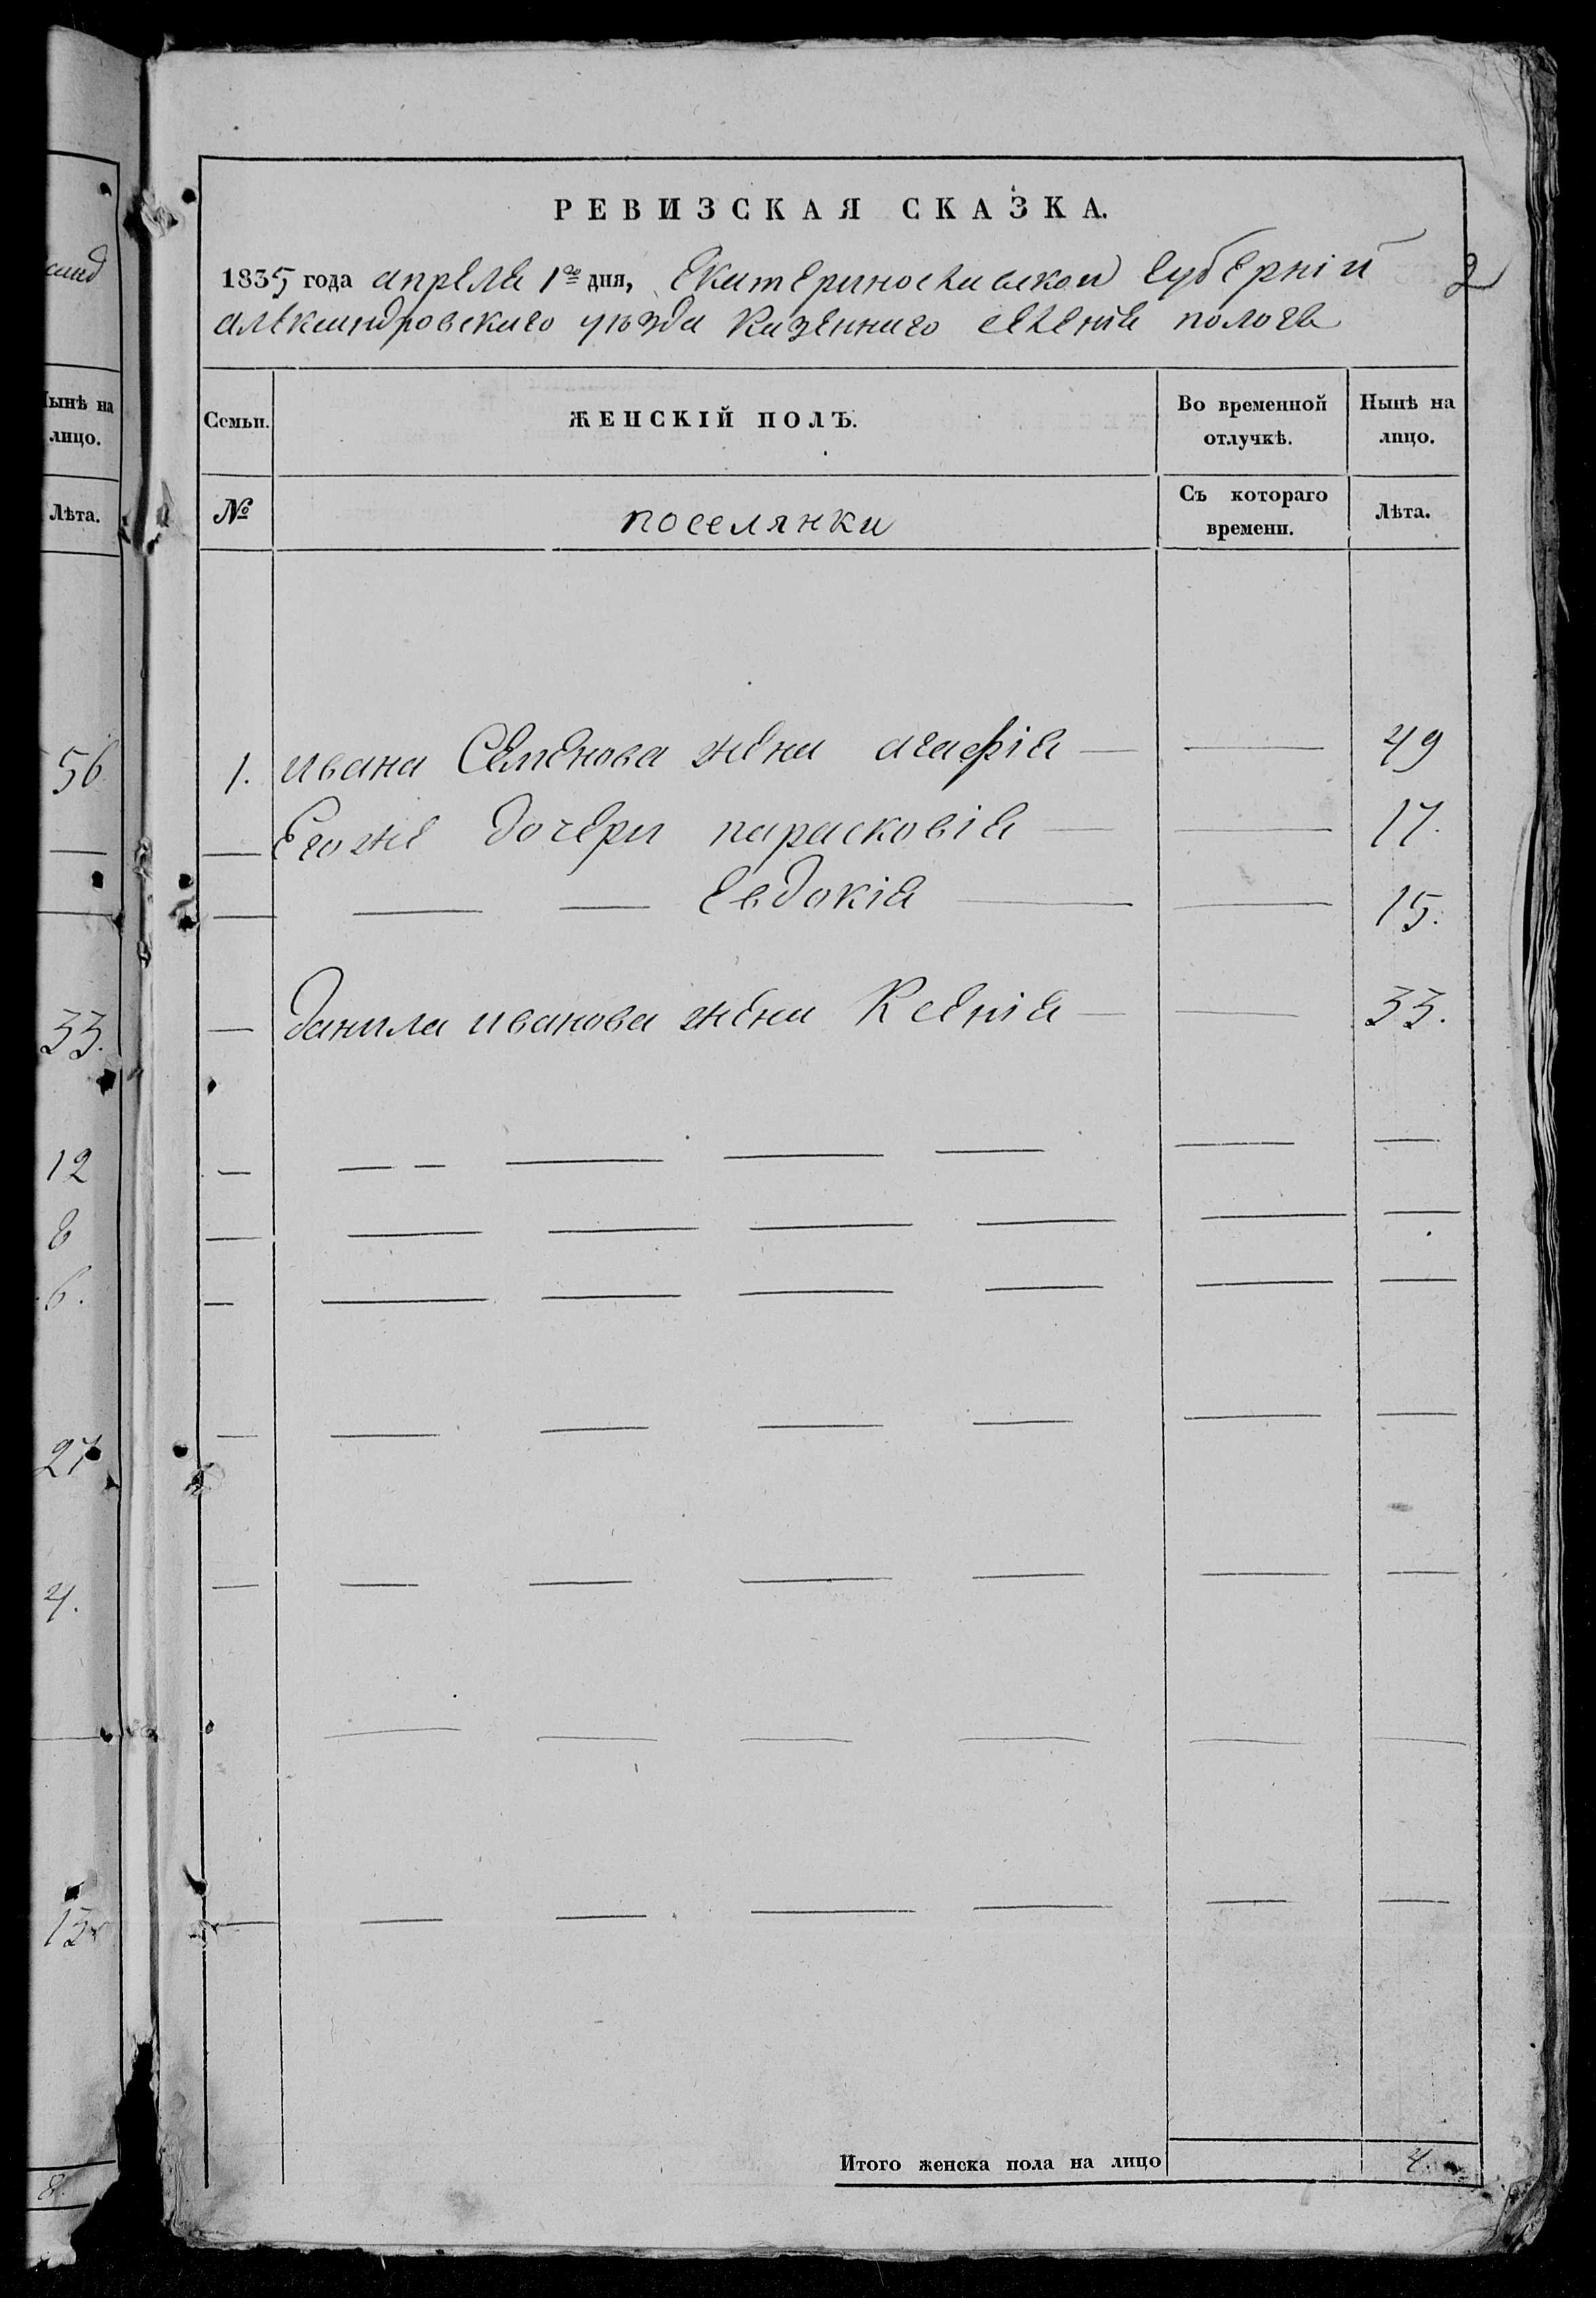 РЕВИЗСКАЯ СКАЗКА.
1835 года апреля 1го дня, Екатеринославской губерніи
2
александровского уѣзда Казенного селенія пологъ
Семьи.
ЖЕНСКІЙ ПОЛЪ.
Во временной отлучкѣ.
Нынѣ на лицо.
№
поселянки
Съ котораго времени.
Лѣта.
1. ивана Семенова жена агафія — — 49
— Егоже дочери парасковія — — 17.
— — — Евдокія — — 15.
— данила иванова жена Ксенія — — 33.
Итого женска пола на лицо 4.
Нынѣ на
лицо.
Лѣта.
56
33.
12
8
6.
27
4.
13
8.